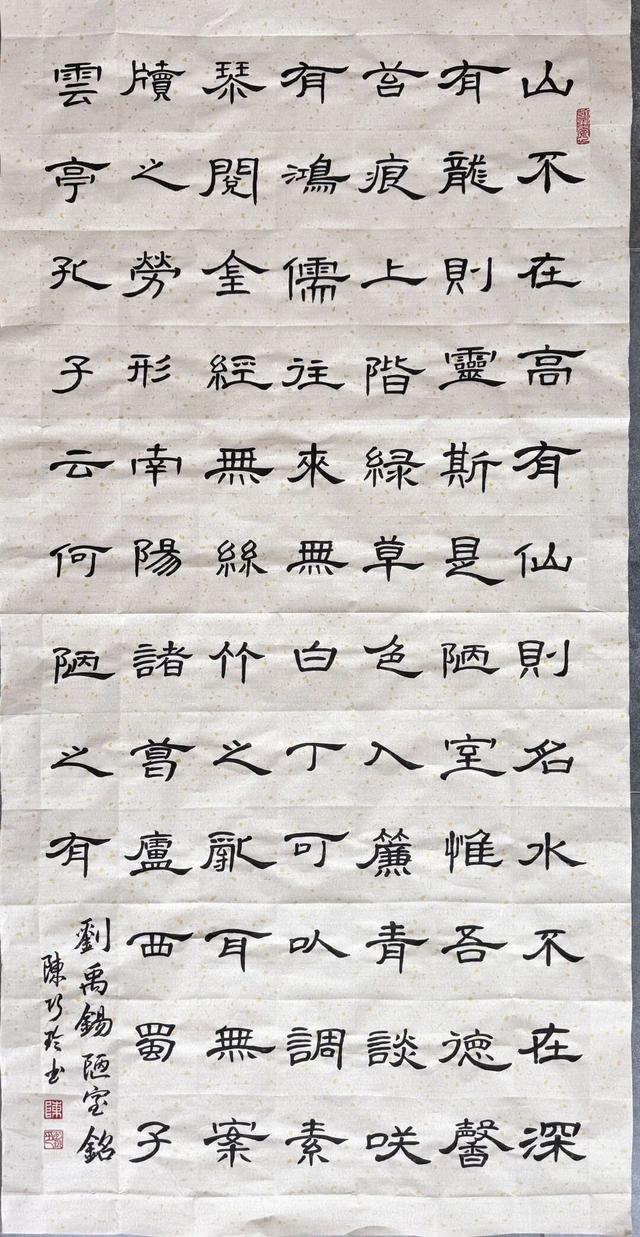 山不在高有仙則名水不在深
有龍則靈斯是陋室惟吾德馨
苔痕上階緑草色入簾青談咲
有鴻儒往來無白丁可以調素
琴閱金經無絲竹之亂耳無案
牘之勞形南陽諸葛廬西蜀子
雲亭孔子云何陋之有
劉禹錫陋室銘
陳巧玲书